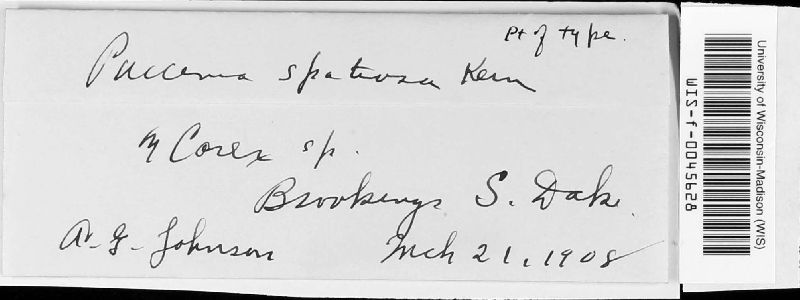 Pt of type.
Puccinia spatiosa Kern
on Carex sp.
Brookings S. Dak.
A. G. Johnson Mch 21, 1908
University of Wisconsin-Madison (WIS)
WIS-f-0045628